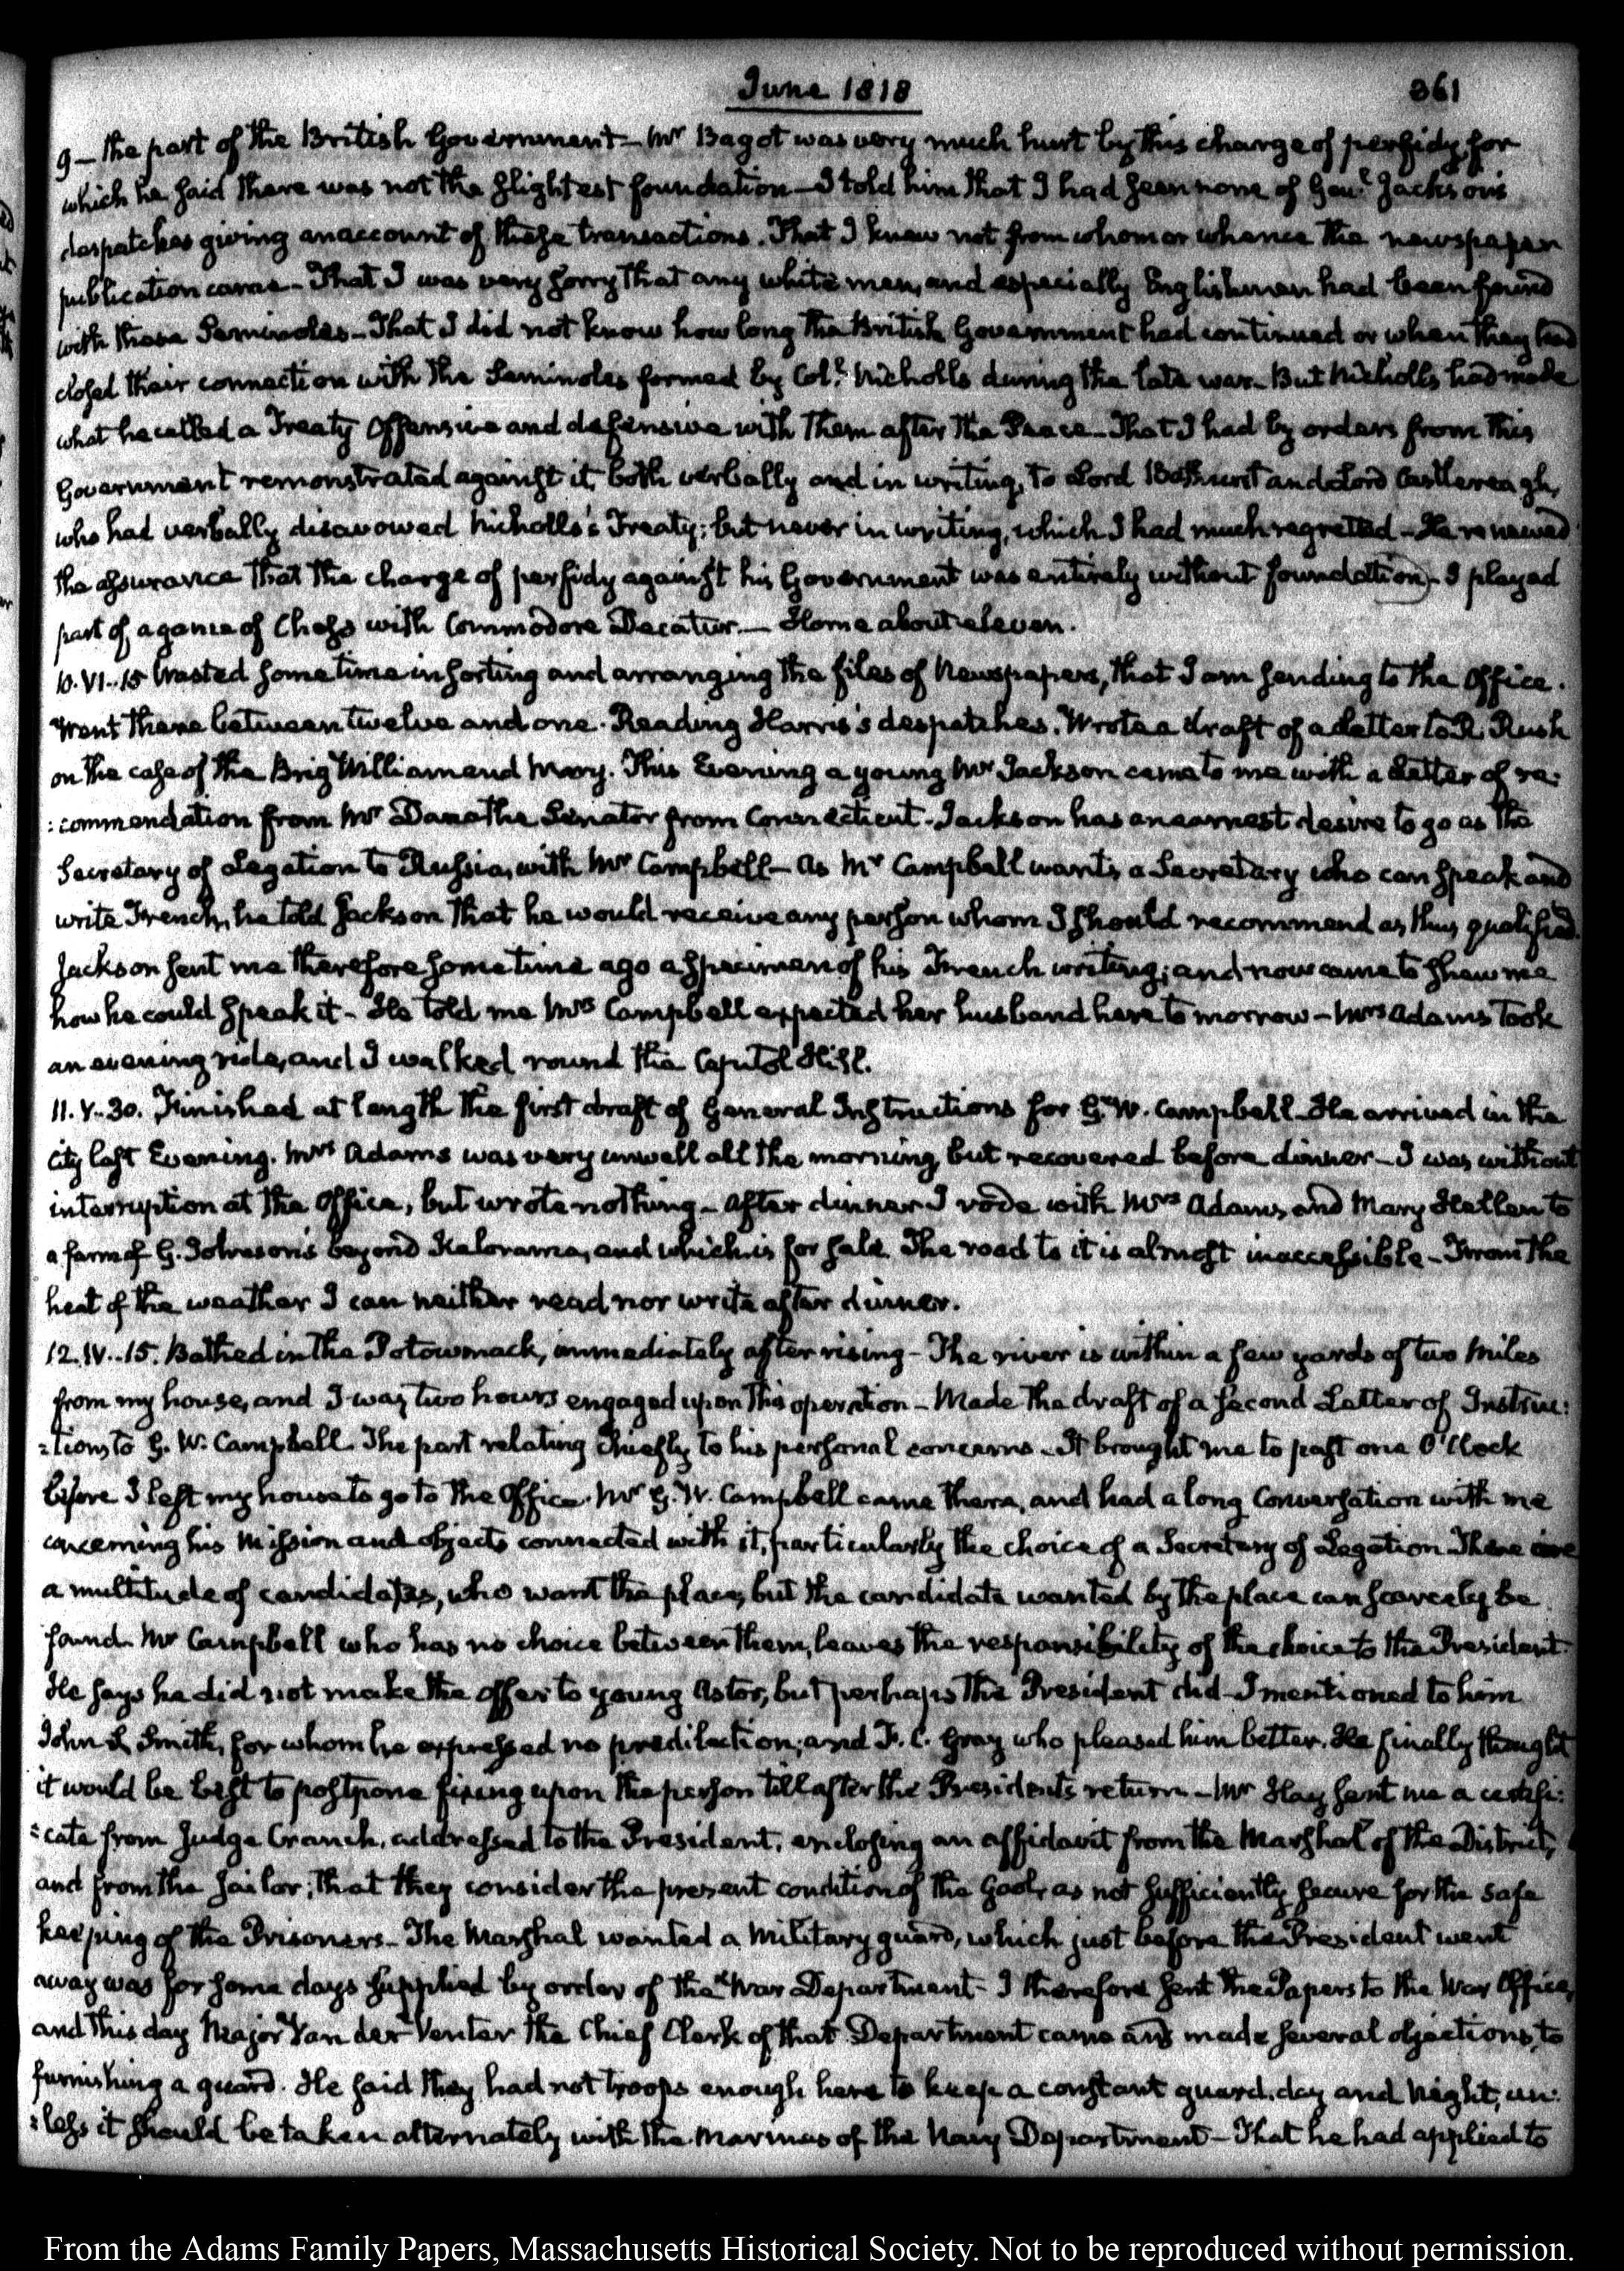 June 1818
361
9 — the part of the British Government — Mr. Bagot was very much hurt by this charge of perfidy, for
which he said there was not the slightest foundation — I told him that I had seen none of Genl. Jackson's
despatches giving an account of these transactions. That I knew not from whom or whence the newspaper
publication came — That I was very sorry that any white men, and especially Englishmen had been found
with these Seminoles — That I did not know how long the British Government had continued or when they had
closed their connection with the Seminoles formed by Coll. Nicholls during the late war. But Nicholls had made
what he called a Treaty Offensive and defensive with them after the Peace — That I had by orders from this
Government remonstrated against it, both verbally and in writing, to Lord Bathurst and Lord Castlereagh,
who had verbally disavowed Nicholls's Treaty; but never in writing, which I had much regretted — He renewed
the assurance that the charge of perfidy against his Government was entirely without foundation — I played
part of a game of Chess with Commodore Decatur — Home about eleven.
10. VI..15 Wasted some time in sorting and arranging the files of Newspapers, that I am sending to the Office.
Went there between twelve and one. Reading Harris's despatches. Wrote a draft of a Letter to R. Rush
on the case of the Brig William and Mary. This Evening a young Mr Jackson came to me with a Letter of re:
:commendation from Mr Dana the Senator from Connecticut — Jackson has an earnest desire to go as the
Secretary of Legation to Russia, with Mr Campbell — As Mr Campbell wants a Secretary who can speak and
write French, he told Jackson that he would receive any person whom I should recommend as thus qualified.
Jackson sent me therefore some time ago a specimen of his French writing; and now came to shew me
how he could speak it — He told me Mrs Campbell expected her husband here to morrow — Mrs Adams took
an evening ride, and I walked round the Capitol Hill.
11. V..30. Finished at length the first draft of General Instructions for G. W. Campbell — He arrived in the
City last Evening. Mrs Adams was very unwell all the morning, but recovered before dinner — I was without
interruption at the Office, but wrote nothing — After dinner I rode with Mrs Adams, and Mary Hellen to
a farm of G. Johnson's beyond Kalorama, and which is for sale. The road to it is almost inaccessible — From the
heat of the weather I can neither read nor write after dinner.
12. IV..15. Bathed in the Potowmack, immediately after rising — The river is within a few yards of two Miles
from my house, and I was two hours engaged upon this operation — Made the draft of a second Letter of Instruc:
:tions to G. W. Campbell. The part relating chiefly to his personal concerns — It brought me to past one O'Clock
before I left my house to go to the Office. Mr G. W. Campbell came there, and had a long Conversation with me
concerning his Mission and objects connected with it, particularly the choice of a Secretary of Legation There are
a multitude of candidates, who want the place, but the candidate wanted by the place can scarcely be
found. Mr Campbell who has no choice between them, leaves the responsibility of the choice to the President.
He says he did not make the offer to young Astor, but perhaps the President did — I mentioned to him
John S. Smith, for whom he expressed no predilection, and F. C. Gray who pleased him better. He finally thought
it would be best to postpone fixing upon the person till after the President's return — Mr Hay sent me a certifi:
:cate from Judge Cranch, addressed to the President, enclosing an affidavit from the Marshal of the District,
and from the Jailor, that they consider the present condition of the Gaol, as not sufficiently secure for the safe
keeping of the Prisoners — The Marshal wanted a Military guard, which just before the President went
away was for some days supplied by order of the War Department — I therefore sent the Papers to the War Office,
and this day Major Van der Venter the Chief Clerk of that Department came and made several objections, to
furnishing a guard. He said they had not troops enough here to keep a constant guard, day and Night, un:
:less it should be taken alternately with the Marines of the Navy Department — That he had applied to
From the Adams Family Papers, Massachusetts Historical Society. Not to be reproduced without permission.